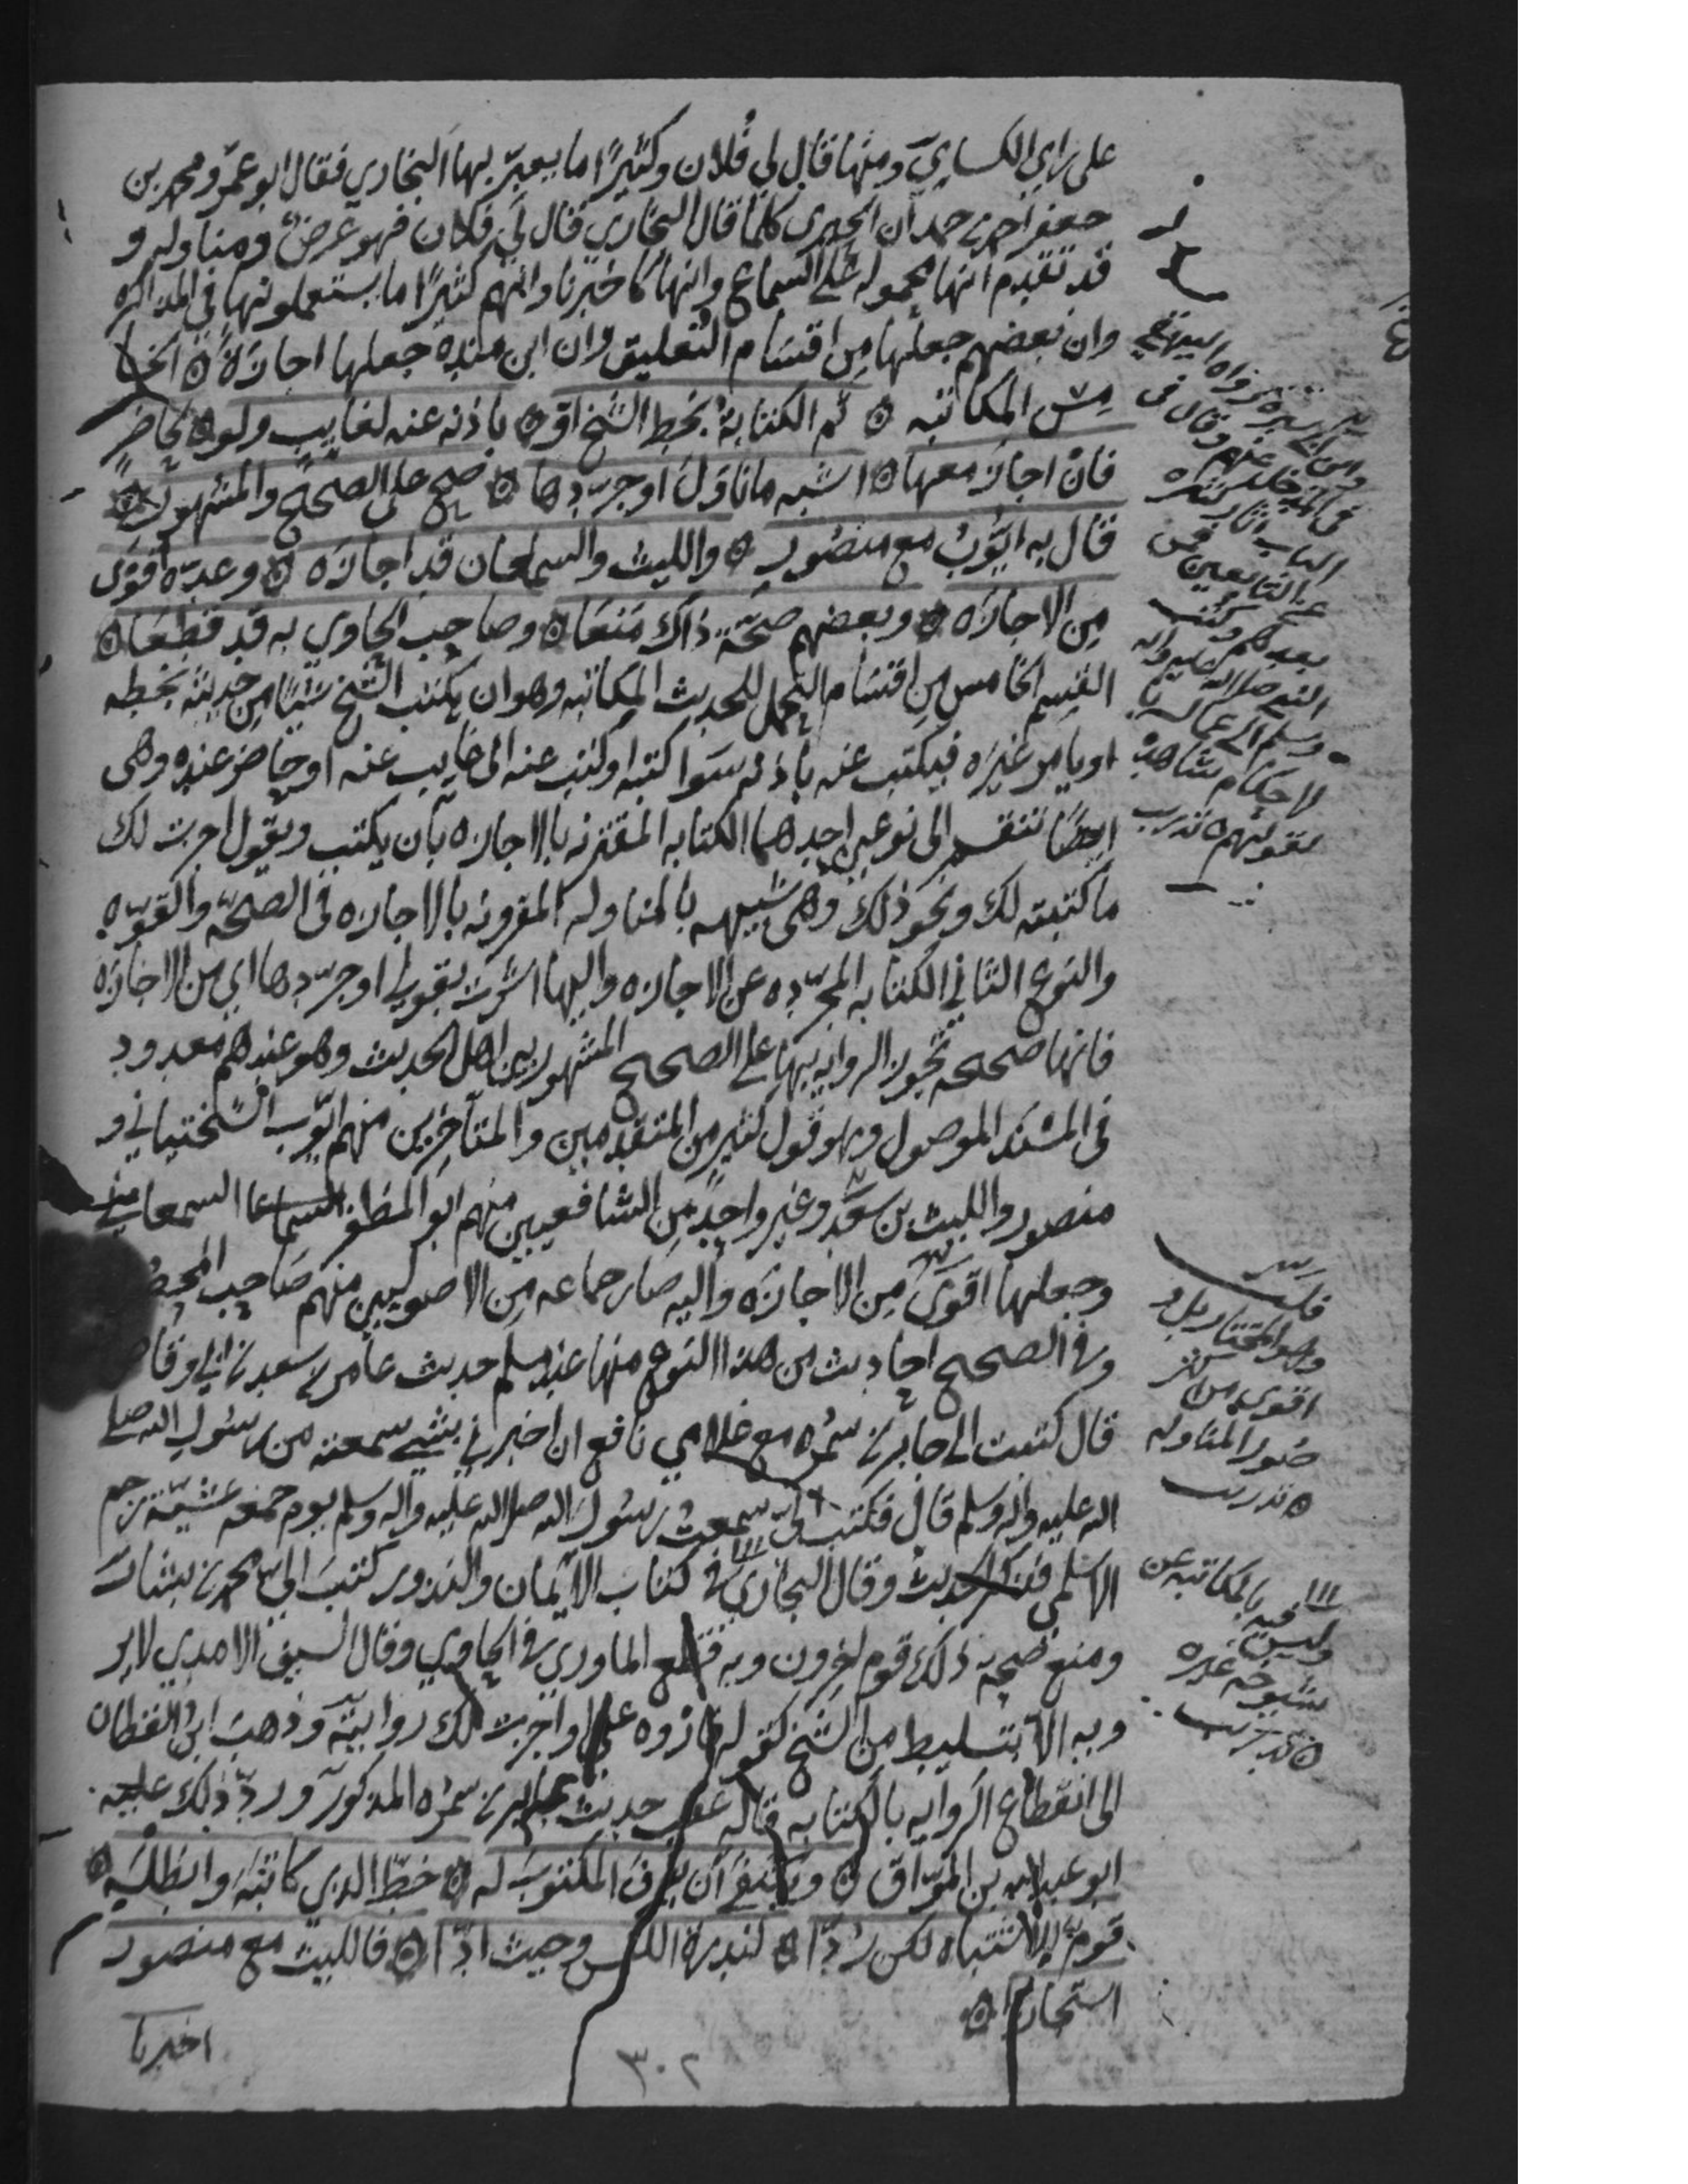 على راي الكسايي ومنها قال لي فلان وكثيرًا ما يعبّر بها البخاري فقال ابو عمرو محمد بن
جعفر احمد بن حمدان الحيري كلما قال البخاري قال لي فلان فهو عرض ومناوله و
قد تقدم انها محموله على السماع وانها كاخبرنا وانهم كثيرًا ما يستعملونها في المذاكره
وان بعضهم جعلها من اقسام التعليق وان ابن منده جعلها اجازةً ۞ الخا
مس المكاتبه ۞ ثم الكتابةُ بخط الشيخ اوْ ۞ باذنه عنه لغايب ولو ۞ لحاضرٍ
فان اجاز معها ۞ اشبه ما ناوَلَ او جرّدها ۞ صح على الصحيح والمشهور ۞
قال به ايّوبُ مع منصورِ ۞ والليث والسمعان قد اجازه ۞ وعدّه اقوى
مِن الاجازَه ۞ وبعضهم صحّةَ ذاك مَنَعَا ۞ وصاحب الحاوي به قد قطعَا ۞
القسم الخامس من اقسام التحمل للحديث المكاتبه وهو ان يكتب الشيخ شيًا من حديثه بخطه
او يامر غيره فيكتب عنه باذنه سوا كتبه او كتب عنه الى غايب عنه او حاضر عنده وهي
ايضًا تنقسم الى نوعين احدهما الكتابه المقترنه بالاجازه بان يكتب ويقول اجزت لك
ما كتبته لك ونحو ذلك وهي شبيهه بالمناوله المقرونه بالاجازه في الصحّه والقوّه
والنوع الثاني الكتابه المجرّده عن الاجازه واليها اشرت بقولي او جرّدها اي من الاجازه
فانها صحيحه تجوز الروايه بها على الصحيح المشهور بين اهل الحديث وهو عندهم معدود
في المسند الموصول وهو قول كثير من المتقدمين والمتاخرين منهم ايّوب السختياني و
منصور والليث بن سعد وغير واحد من الشافعيين منهم ابو المظفر السمعاني
وجعلها اقوى من الاجازه واليه صار جماعه من الاصوليين منهم صاحب المحصول
وفي الصحيح احاديث من هذا النوع منها عند مسلم حديث عامر بن سعد بن ابي وقاص
قال كتبت الى جابر بن سمره مع غلامي نافع ان اخبرني بشيٍ سمعته من رسول الله صلى
الله عليه واله وسلم قال فكتب اليّ سمعت رسول الله صلى الله عليه واله وسلم يوم جمعه عشيّة رجم
الاسلمي فذكر الحديث وقال البخاري في كتاب الايمان والنذور كتب اليّ محمد بن بشار
ومنع صحة ذلك قوم اخرون وبه قطع الماوردي في الحاوي وقال السيف الامدي لا ير
ويه الا بتسليط من الشيخ كقوله فاروه عني او اجزت لك روايته وذهب ابن القطان
الى انقطاع الروايه بالكتابه قاله عقب حديث جابر بن سمره المذكور ورد ذلك عليه
ابو عبد الله بن الموّاق ۞ ويكتفى ان يعرف المكتوب له ۞ خطّ الذي كاتبه وابطله ۞
قوم للاشتباه لكن رُدّا ۞ لندرة اللبس وحيث ادّا ۞ فالليث مع منصور
استجازا ۞
اخبرنا
٣٠٢
رواه البيهقي
وقال في
المدخل
الباب اثار كثيره
عن التابعين فمن
بعدهم وكتب
النبي صلى الله عليه واله
وسلم الى عماله
بالاحكام شاهده
لقولهم ۞ تدريب
قلت
وهو المختار بل و
اقوى من اكثر
صور المناوله
۞ تدريب
وليس فيه بالمكاتبه عن
شيوخه غيره
۞ تدريب